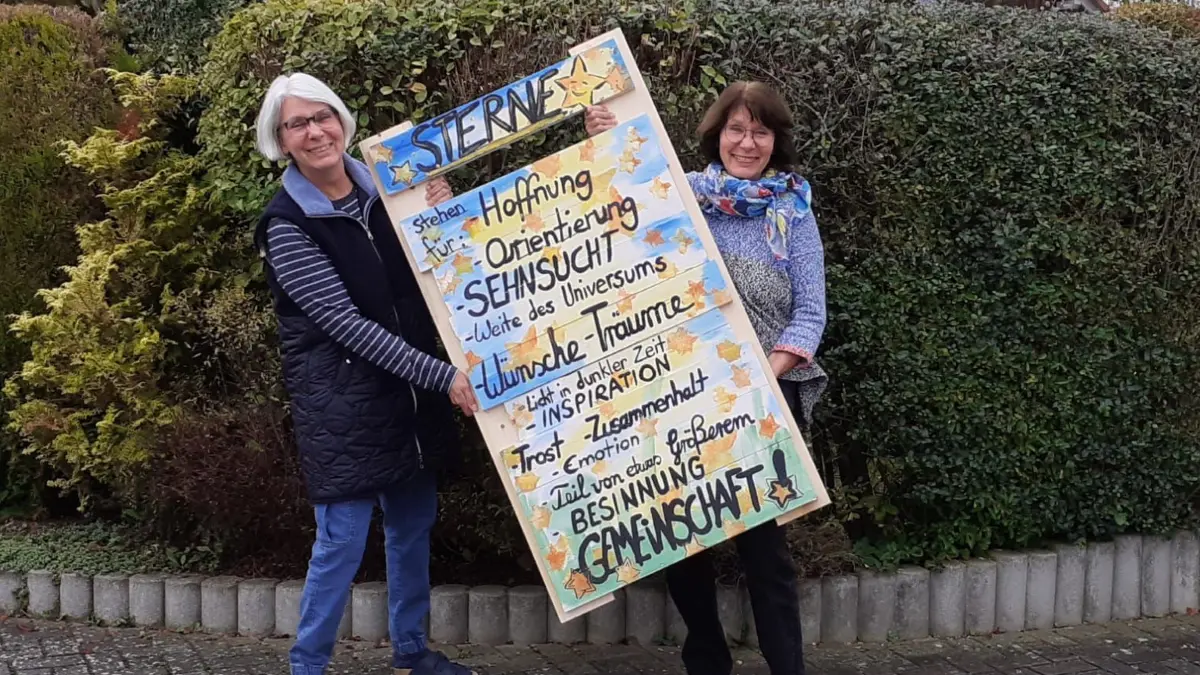 STERNE
stehen für:
- Hoffnung
- Orientierung
- SEHNSUCHT
- Weite des Universums
- Wünsche - Träume
- Licht in dunkler Zeit
- INSPIRATION
- Trost - Zusammenhalt
- Emotion
- Teil von etwas Größerem
BESINNUNG
GEMEINSCHAFT!